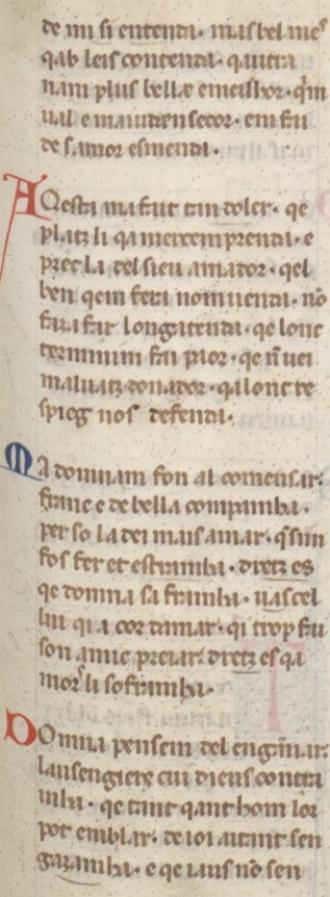 de mi si entenda. mas bel mes
qab leis contenda. qautra
nam plus bella e meillor. qem
ual e maiuda e secor. em fai
de samor esmenda.
AQesta ma fait tan doler. qe
platz li qa mercem prenda. e
prec la del sieu amador. qel
ben qem fera nom uenda. no
faza far longatenda. qe lonc
terminim fai paor. qe n uei
maluatz donador. qa lonc re
spieg nos defenda.
MA domnam fon al comensar.
franc e de bella compainha.
per so la dei mais amar. qsim
fos fer et estrainha. dretz es
qe domna sa frainha. uas cel
lui qi a cor damar. qi trop fai
son amic preiar. dretz es qa
mors li sofrainha.
DOmna pensem del enginar.
lausengiers cui dieus contra
inha. qe tant qant hom lor
pot emblar. de ioi aitant sen
gazainha. e qe iaus no sen